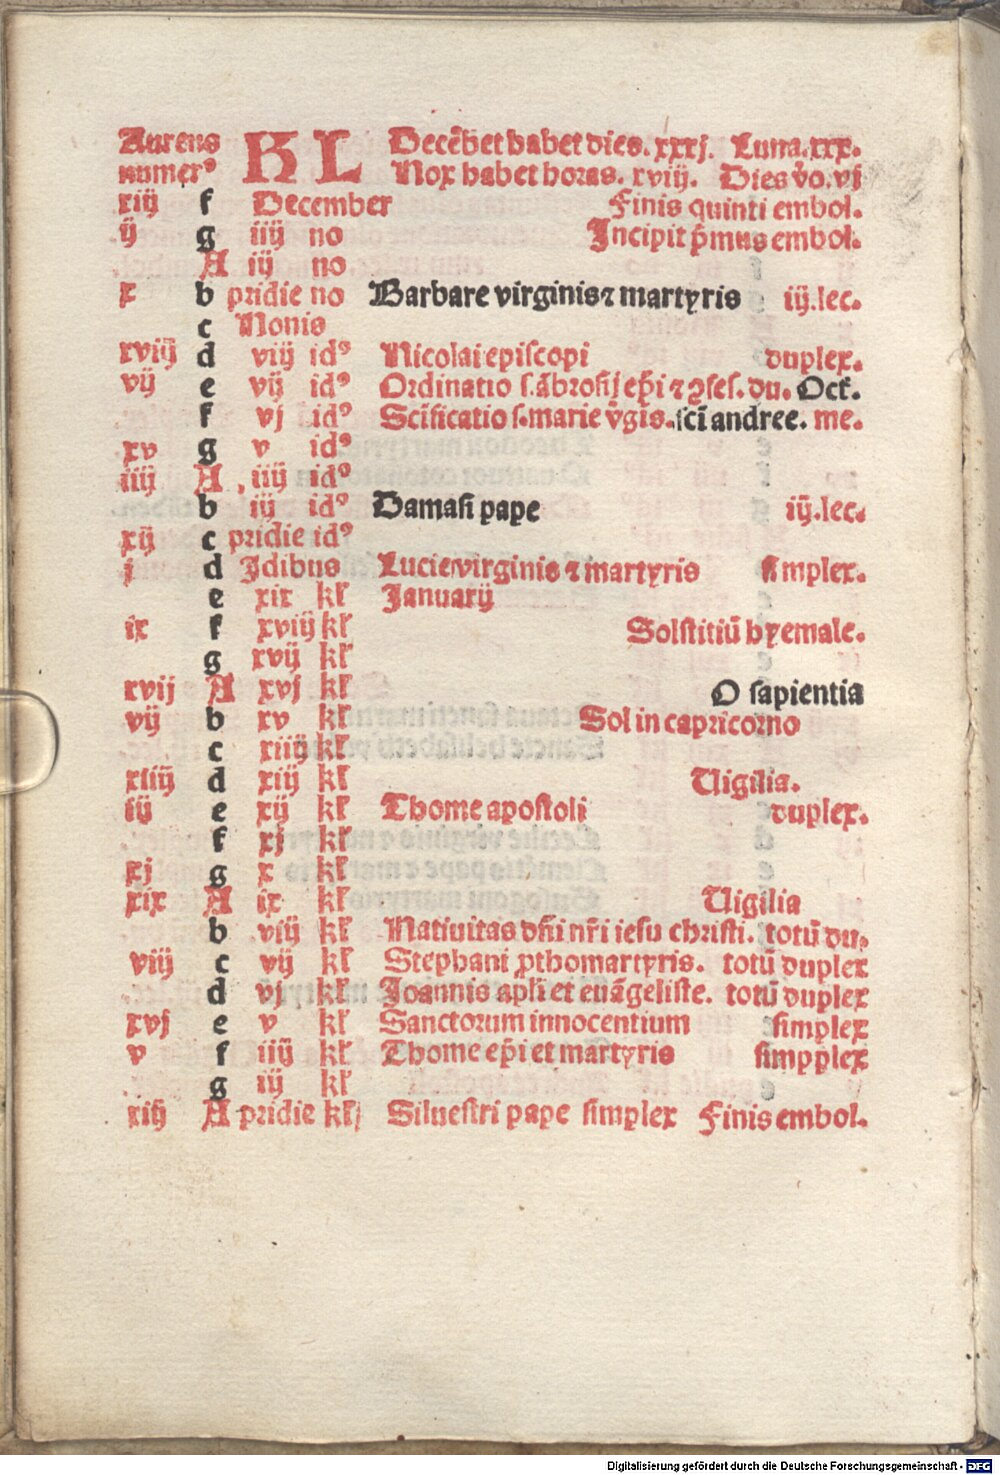 Aureus KL Decēbet habet dies. xxxj. Luna. xxx.
numerꝰ Nox habet horas. xviij. Dies v̄o. vj
xiij f December Finis quinti embol.
ij g iiij no Incipit p̄mus embol.
A iij no
x b pridie no Barbare virginis ⁊ martyris iij. lec.
c Nonis
xviij d viij idꝰ Nicolai episcopi duplex.
vij e vij idꝰ Ordinatio s. ābrosij ep̄i ⁊ ꝯfes. du. Oct̄.
f vj idꝰ Scīficatio s. marie v̄gīs. scī andree. me.
xv g v idꝰ
iiij A iiij idꝰ
b iij idꝰ Damasi pape iij. lec.
xij c pridie idꝰ
j d Idibus Lucie virginis ⁊ martyris simplex.
e xix kl̄ Januarij
ix f xviij kl̄ Solstitiū hyemale.
g xvij kl̄
xvij A xvj kl̄ O sapientia
vij b xv kl̄ Sol in capricorno
c xiiij kl̄
xiiij d xiij kl̄ Vigilia.
iij e xij kl̄ Thome apostoli duplex.
f xj kl̄
xj g x kl̄
xix A ix kl̄ Vigilia
b viij kl̄ Natiuitas dn̄i nr̄i iesu christi. totū du.
viij c vij kl̄ Stephani ꝓthomartyris. totū duplex
d vj kl̄ Joannis apl̄i et euāgeliste. totū duplex
xvj e v kl̄ Sanctorum innocentium simplex
v f iiij kl̄ Thome ep̄i et martyris simpplex
g iij kl̄
xiij A pridie kl̄ Siluestri pape simplex Finis embol.
Digitalisierung gefördert durch die Deutsche Forschungsgemeinschaft - DFG